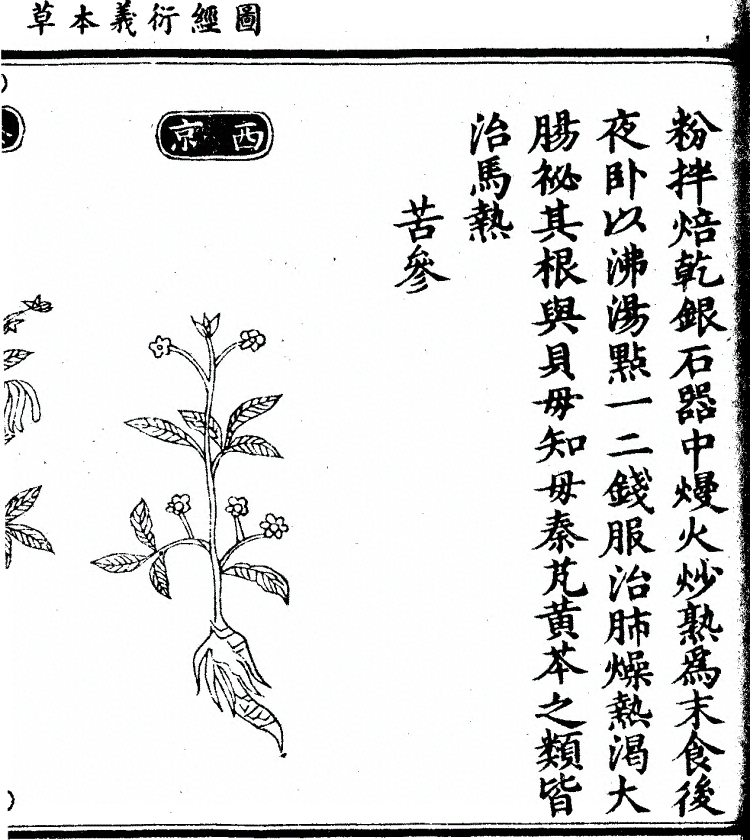 圖經衍義本草
粉拌焙乾銀石器中熳火炒熟爲末食後
夜卧以沸湯點一二錢服治肺燥熱渴大
腸祕其根與貝毋知毋秦芃黄芩之類皆
治馬熱
苦參
西京